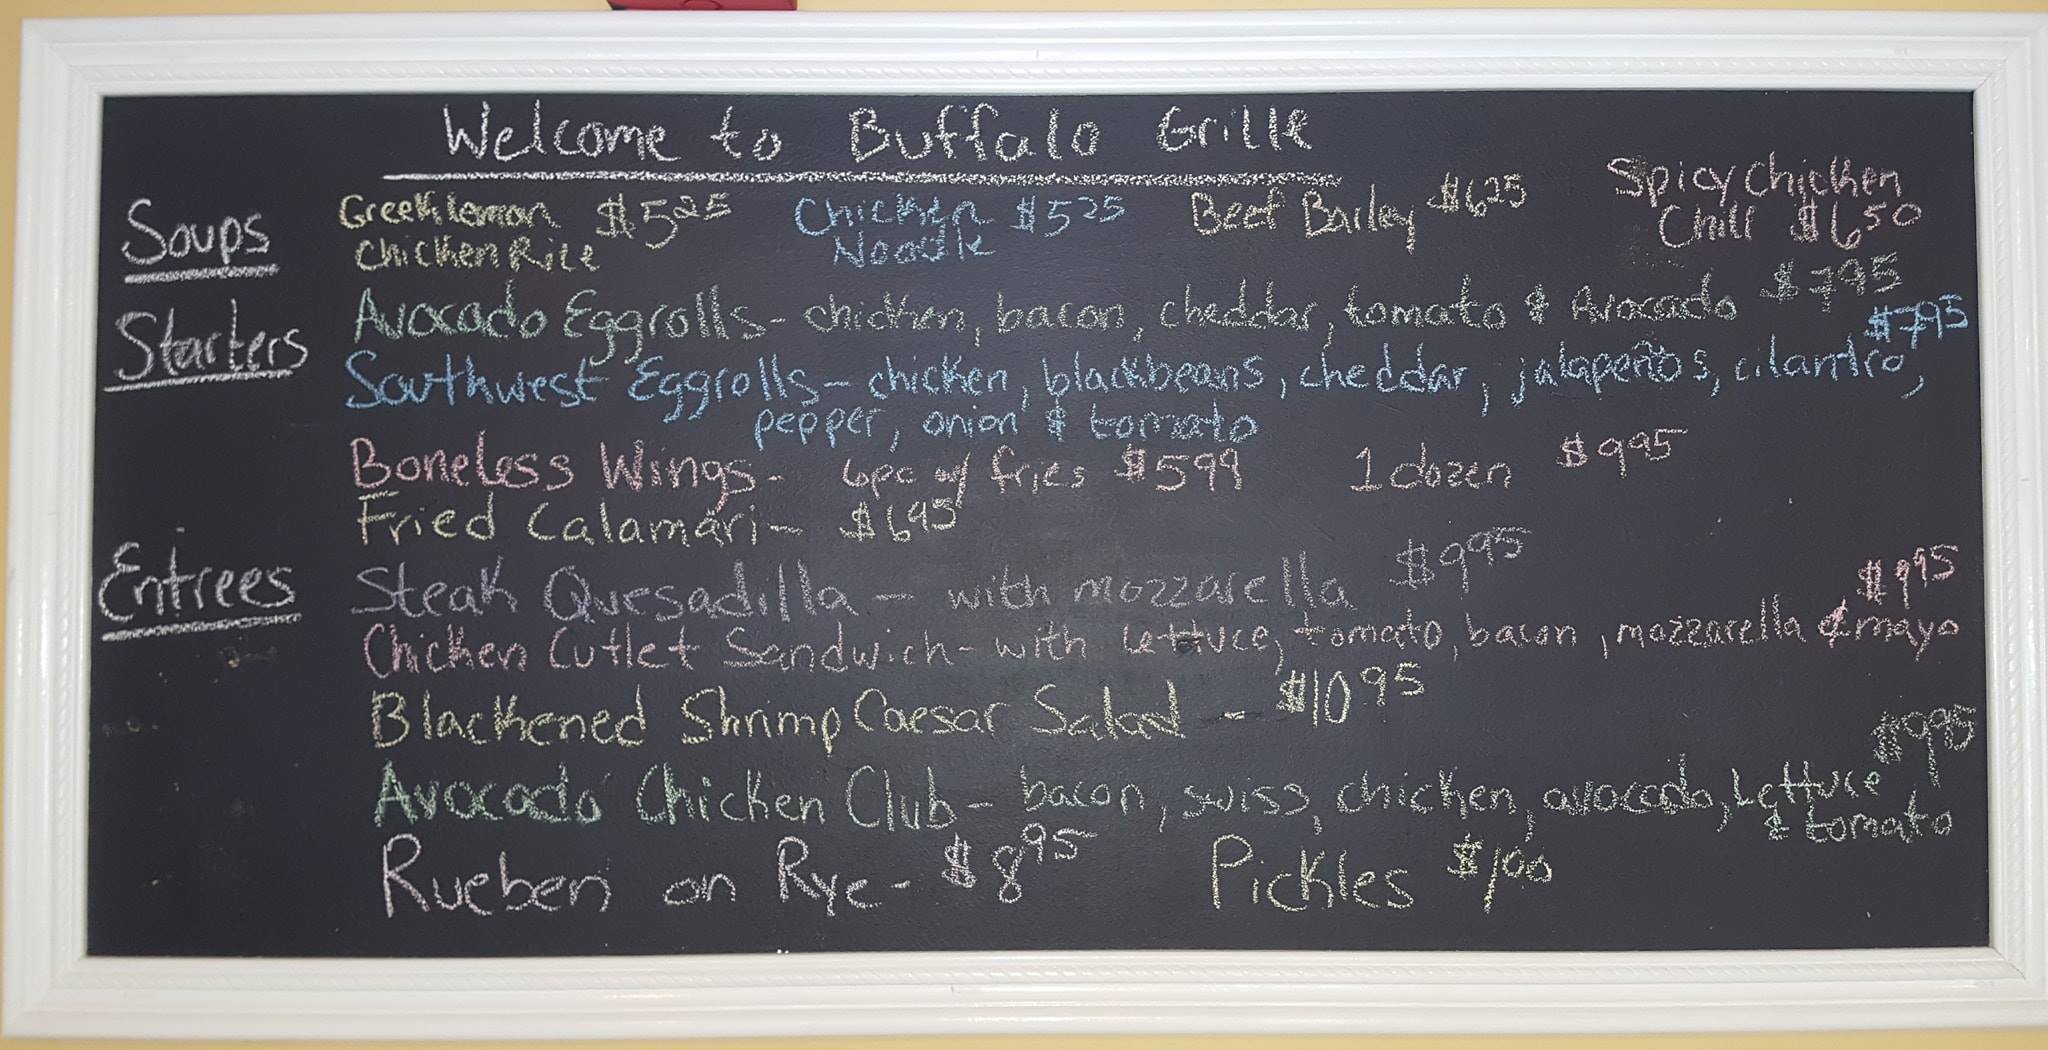 Welcome to Buffalo Grille
Soups
Greek lemon Chicken Rice $5 25
Chicken Noodle $5 25
Beef Barley $6 25
Spicy Chicken Chili $6 50
Starters
Avocado Eggrolls - chicken, bacon, cheddar, tomato & Avocado $7 95
Southwest Eggrolls - chicken, blackbeans, cheddar, jalapeños, cilantro, $7 95
pepper, onion & tomato
Boneless Wings - 6pc w/ fries $5 99 1 dozen $9 95
Fried Calamari - $6 95
Entrees
Steak Quesadilla - with mozzarella $9 95
Chicken Cutlet Sandwich - with Lettuce, tomato, bacon, mozzarella & mayo $9 95
Blackened Shrimp Caesar Salad - $10 95
Avocado Chicken Club - bacon, swiss, chicken, avocado, Lettuce $9 95
& tomato
Rueben on Rye - $8 95 Pickles $1 00